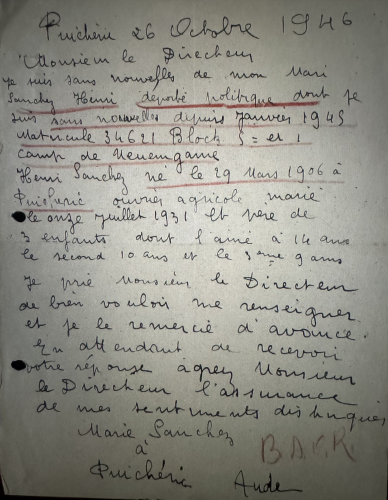 Puichéric 26 Octobre 1946
Monsieur le Directeur
Je suis sans nouvelles de mon Mari
Sanchez Henri deporté politique dont je
suis sans nouvelles depuis Janvier 1945
Matricule 34621 Block 5 et 1
Camp de Neuengame
Henri Sanchez né le 29 Mars 1906 à
Puicheric ouvrier agricole marié
le onze juillet 1931 Et pere de
3 enfants dont l'ainé à 14 ans
le second 10 ans et le 3eme 9 ans
Je prie Monsieur le Directeur
de bien vouloir me renseigner
et je le remercie d'avance.
En attendant de recevoir
votre réponse agreez Monsieur
le Directeur l'assurance
de mes sentiments distingués
Marie Sanchez
à
Puichéric Aude